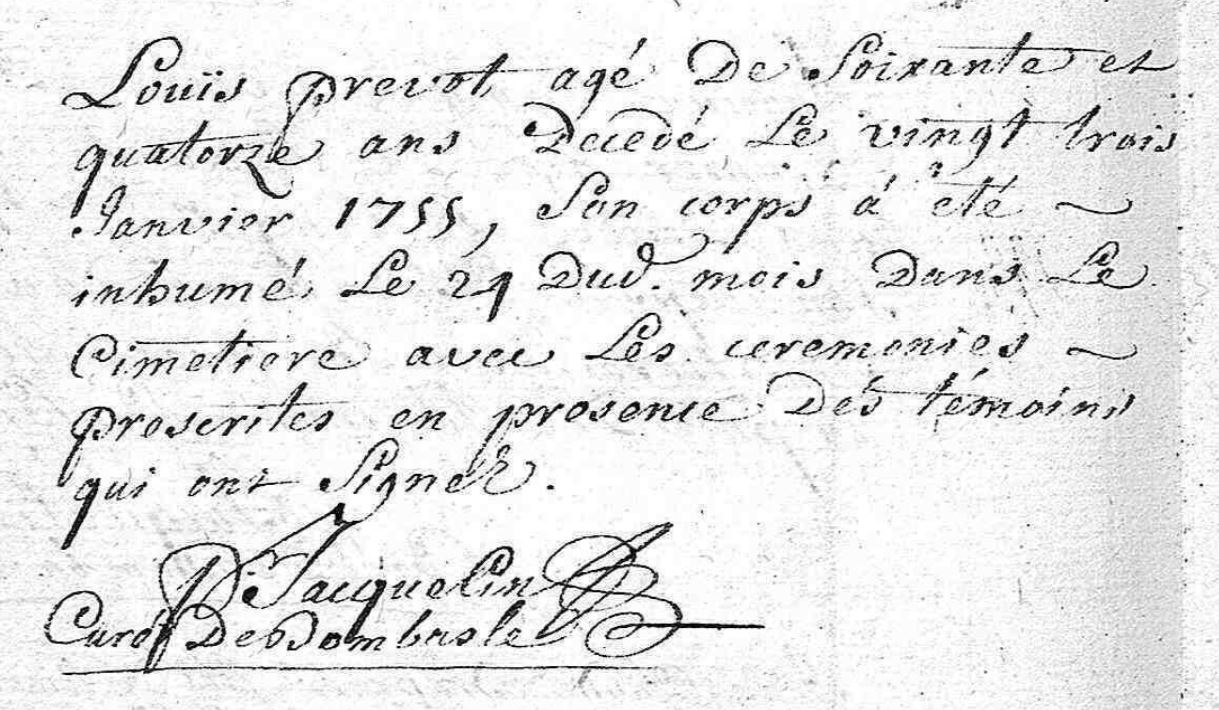 Louïs prevot agé De Soixante et
quatorze ans Decedé Le vingt trois
Janvier 1755, Son corps á eté ~
inhumé Le 24 Dud. mois Dans Le
Cimetiere avec Les ceremonies ~
prescrites en presence Dés témoins
qui ont Signez.
Jacquelin
Curé De Dombasle